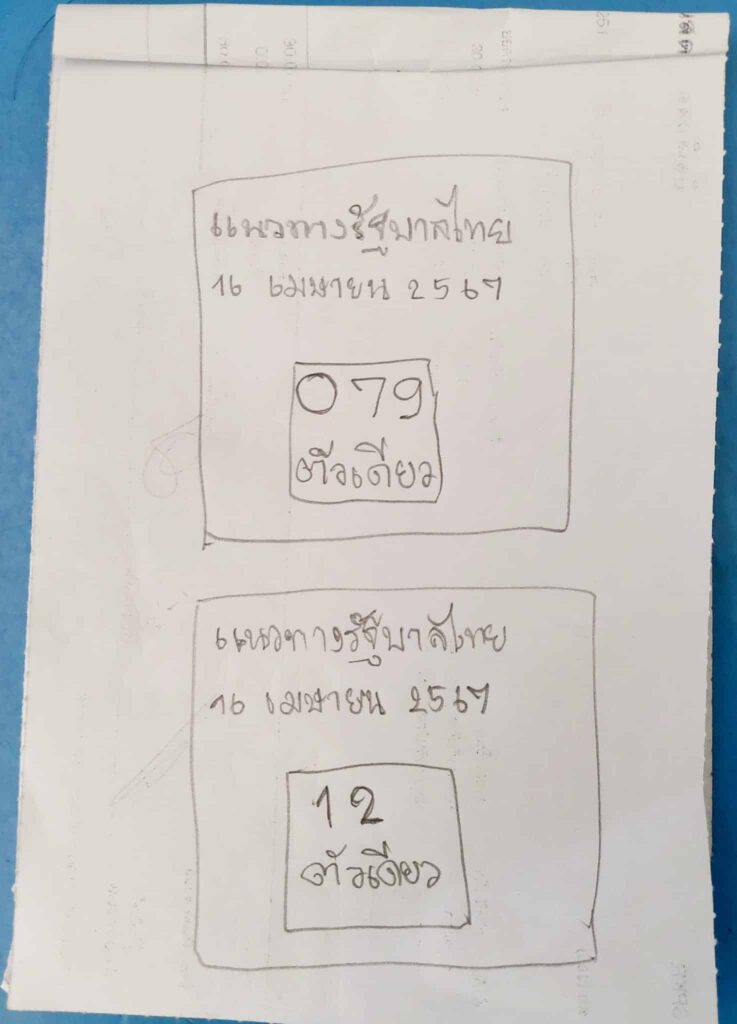 แนวทางรัฐบาลไทย
16 เมษายน 2567
079
ตัวเดียว
แนวทางรัฐบาลไทย
16 เมษายน 2567
12
ตัวเดียว